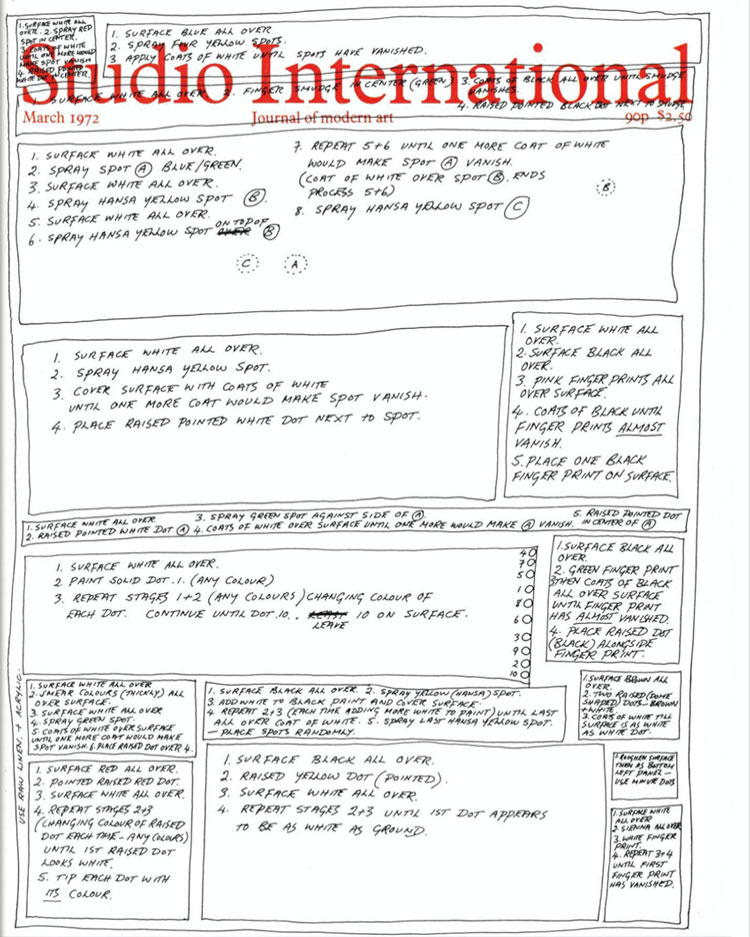 1. SURFACE WHITE ALL
OVER. 2. SPRAY RED
SPOT IN CENTER.
3. COATS OF WHITE
UNTIL ONE MORE WOULD
MAKE SPOT VANISH
4. RAISED POINTED
WHITE DOT IN CENTER.
1. SURFACE BLUE ALL OVER
2. SPRAY FOUR YELLOW SPOTS.
3 APPLY COATS OF WHITE UNTIL SPOTS HAVE VANISHED.
Studio International
1. SURFACE WHITE ALL OVER 2. FINGER SMUDGE IN CENTER (GREEN) 3. COATS OF BLACK ALL OVER UNTIL SMUDGE
VANISHES.
4. RAISED POINTED BLACK DOT NEXT TO SMUDGE
March 1972
Journal of modern art
90p $2.50
1. SURFACE WHITE ALL OVER.
2. SPRAY SPOT A BLUE/GREEN.
3. SURFACE WHITE ALL OVER.
4. SPRAY HANSA YELLOW SPOT B.
5. SURFACE WHITE ALL OVER.
6. SPRAY HANSA YELLOW SPOT ON TOP OF OVER B
7. REPEAT 5+6 UNTIL ONE MORE COAT OF WHITE
WOULD MAKE SPOT A VANISH.
(COAT OF WHITE OVER SPOT B. ENDS
PROCESS 5+6)
8. SPRAY HANSA YELLOW SPOT C
B
C
A
1. SURFACE WHITE ALL OVER.
2. SPRAY HANSA YELLOW SPOT.
3 COVER SURFACE WITH COATS OF WHITE
UNTIL ONE MORE COAT WOULD MAKE SPOT VANISH.
4. PLACE RAISED POINTED WHITE DOT NEXT TO SPOT.
1. SURFACE WHITE ALL
OVER.
2. SURFACE BLACK ALL
OVER.
3. PINK FINGER PRINTS ALL
OVER SURFACE.
4. COATS OF BLACK UNTIL
FINGER PRINTS ALMOST
VANISH.
5. PLACE ONE BLACK
FINGER PRINT ON SURFACE.
1. SURFACE WHITE ALL OVER
2. RAISED POINTED WHITE DOT A
3. SPRAY GREEN SPOT AGAINST SIDE OF A.
4. COATS OF WHITE OVER SURFACE UNTIL ONE MORE WOULD MAKE A VANISH.
5. RAISED POINTED DOT
IN CENTER OF A
1. SURFACE WHITE ALL OVER.
2. PAINT SOLID DOT. 1. (ANY COLOUR)
3. REPEAT STAGES 1+2 (ANY COLOURS) CHANGING COLOUR OF
EACH DOT. CONTINUE UNTIL DOT. 10.. 10 ON SURFACE.
LEAVE
4
7
5
1
8
6
3
9
2
10
1. SURFACE BLACK ALL
OVER.
2. GREEN FINGER PRINT
3 THEN COATS OF BLACK
ALL OVER SURFACE
UNTIL FINGER PRINT
HAS ALMOST VANISHED.
4. PLACE RAISED DOT
(BLACK) ALONGSIDE
FINGER PRINT.
USE RAW LINEN + ACRYLIC.
1. SURFACE WHITE ALL OVER
2. SMEAR COLOURS (THICKLY) ALL
OVER SURFACE.
3. SURFACE WHITE ALL OVER
4. SPRAY GREEN SPOT.
5. COATS OF WHITE OVER SURFACE
UNTIL ONE MORE COAT WOULD MAKE
SPOT VANISH 6. PLACE RAISED DOT OVER 4.
1. SURFACE BLACK ALL OVER. 2. SPRAY YELLOW (HANSA) SPOT.
3. ADD WHITE TO BLACK PAINT AND COVER SURFACE.
4. REPEAT 2+3 (EACH TIME ADDING MORE WHITE TO PAINT) UNTIL LAST
ALL OVER COAT OF WHITE. 5. SPRAY LAST HANSA YELLOW SPOT.
— PLACE SPOTS RANDOMLY.
1. SURFACE BROWN ALL
OVER.
2. TWO RAISED (DOME
SHAPED) DOTS – BROWN
+ WHITE.
3. COATS OF WHITE TILL
SURFACE IS AS WHITE
AS WHITE DOT.
1. SURFACE RED ALL OVER.
2. POINTED RAISED RED DOT.
3. SURFACE WHITE ALL OVER.
4. REPEAT STAGES 2+3
(CHANGING COLOUR OF RAISED
DOT EACH TIME – ANY COLOURS)
UNTIL 1ST RAISED DOT
LOOKS WHITE.
5. TIP EACH DOT WITH
ITS COLOUR.
1. SURFACE BLACK ALL OVER.
2. RAISED YELLOW DOT (POINTED).
3. SURFACE WHITE ALL OVER.
4. REPEAT STAGES 2+3 UNTIL 1ST DOT APPEARS
TO BE AS WHITE AS GROUND.
1. ROUGHEN SURFACE
THEN AS BOTTOM
LEFT PANEL –
USE MINUR DOTS
1. SURFACE WHITE
ALL OVER
2. SIENNA ALL OVER
3. WHITE FINGER
PRINT.
4. REPEAT 3+4
UNTIL FIRST
FINGER PRINT
HAS VANISHED.